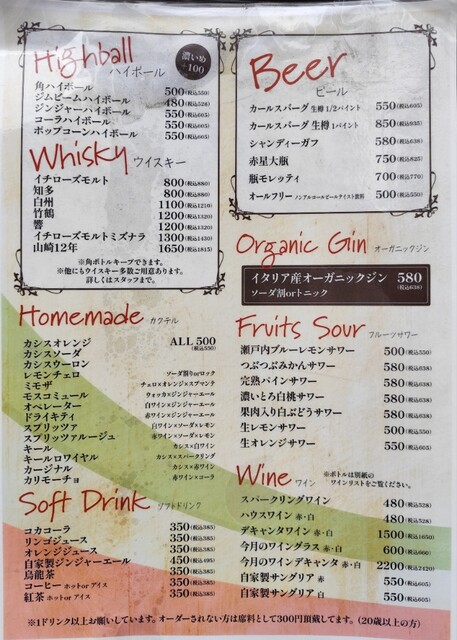 Highball ハイボール
濃いめ +100
角ハイボール 500(税込550)
ジムビームハイボール 480(税込528)
ジンジャーハイボール 550(税込605)
コーラハイボール 550(税込605)
ポップコーンハイボール 550(税込605)
Whisky ウイスキー
イチローズモルト 800(税込880)
知多 800(税込880)
白州 1100(税込1210)
竹鶴 1200(税込1320)
響 1200(税込1320)
イチローズモルトミズナラ 1300(税込1430)
山崎12年 1650(税込1815)
※角ボトルキープできます。
※他にもウイスキー多数ご用意あります。
詳しくはスタッフまで。
Beer
ビール
カールスバーグ 生樽 1/2パイント 550(税込605)
カールスバーグ 生樽 1パイント 850(税込935)
シャンディーガフ 580(税込638)
赤星大瓶 750(税込825)
瓶モレッティ 700(税込770)
オールフリー ノンアルコールビールテイスト飲料 500(税込550)
Organic Gin オーガニックジン
イタリア産オーガニックジン 580
ソーダ割orトニック (税込638)
Homemade カクテル
カシスオレンジ ALL 500
カシスソーダ (税込550)
カシスウーロン
レモンチェロ ソーダ割りorロック
ミモザ チェロ×オレンジ×スプマンテ
モスコミュール ウォッカ×ジンジャーエール
オペレーター 白ワイン×ジンジャーエール
ドライキティ 赤ワイン×ジンジャーエール
スプリッツァ 白ワイン×ソーダ×レモン
スプリッツァルージュ 赤ワイン×ソーダ×レモン
キール カシス×白ワイン
キールロワイヤル カシス×スパークリング
カージナル カシス×赤ワイン
カリモーチョ 赤ワイン×コーラ
Fruits Sour フルーツサワー
瀬戸内ブルーレモンサワー 500(税込550)
つぶつぶみかんサワー 580(税込638)
完熟パインサワー 580(税込638)
濃いとろ白桃サワー 580(税込638)
果肉入り白ぶどうサワー 580(税込638)
生レモンサワー 500(税込550)
生オレンジサワー 550(税込605)
Soft Drink ソフトドリンク
コカコーラ 350(税込385)
リンゴジュース 350(税込385)
オレンジジュース 350(税込385)
自家製ジンジャーエール 450(税込495)
烏龍茶 350(税込385)
コーヒー hot or アイス 350(税込385)
紅茶 hot or アイス 350(税込385)
Wine ワイン
※ボトルは別紙の
ワインリストをご覧ください。
スパークリングワイン 480(税込528)
ハウスワイン 赤・白 480(税込528)
デキャンタワイン 赤・白 1500(税込1650)
今月のワイングラス 赤・白 600(税込660)
今月のワインデキャンタ 赤・白 2200(税込2420)
自家製サングリア 赤 550(税込605)
自家製サングリア 白 550(税込605)
※1ドリンク以上お願いしています。オーダーされない方は席料として300円頂戴してます。(20歳以上の方)